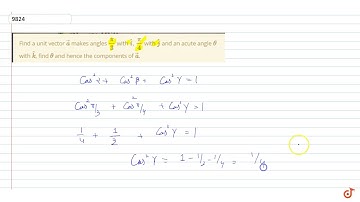 9824
Find a unit vector a⃗ makes angles π/3 with î, π/4 with ĵ and an acute angle θ
with k̂, find θ and hence the components of a⃗.
Cos²α + Cos²β + Cos²γ = 1
Cos²π/3 + Cos²π/4 + Cos²γ = 1
1/4 + 1/2 + Cos²γ = 1
Cos²γ = 1 - 1/2 - 1/4 = 1/4